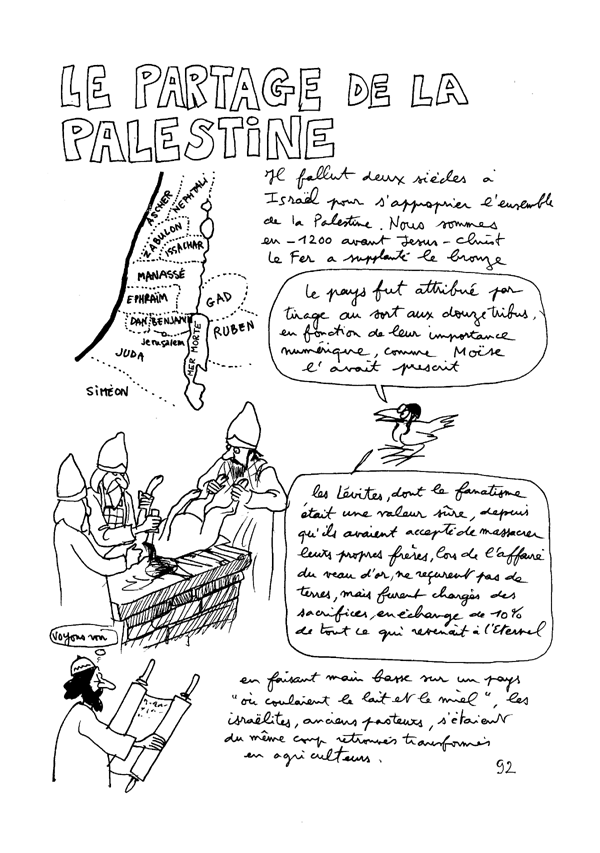 LE PARTAGE DE LA
PALESTINE
Il fallut deux siècles à
Israël pour s'approprier l'ensemble
de la Palestine. Nous sommes
en -1200 avant Jesus-Christ
Le Fer a supplanté le bronze
ASCHER
NEPHTALI
ZABULON
ISSACHAR
MANASSÉ
EPHRAÏM
GAD
DAN
BENJAMIN
RUBEN
Jerusalem
MER MORTE
JUDA
SIMÉON
Le pays fut attribué par
tirage au sort aux douze tribus,
en fonction de leur importance
numérique, comme Moïse
l'avait prescrit
les Lévites, dont le fanatisme
était une valeur sûre, depuis
qu'ils avaient accepté de massacrer
leurs propres frères, lors de l'affaire
du veau d'or, ne reçurent pas de
terres, mais furent chargés des
sacrifices, en échange de 10%
de tout ce qui revenait à l'Eternel
Voyons voir
en faisant main basse sur un pays
"où coulaient le lait et le miel", les
israëlites, anciens pasteurs, s'étaient
du même coup retrouvés transformés
en agriculteurs.
92